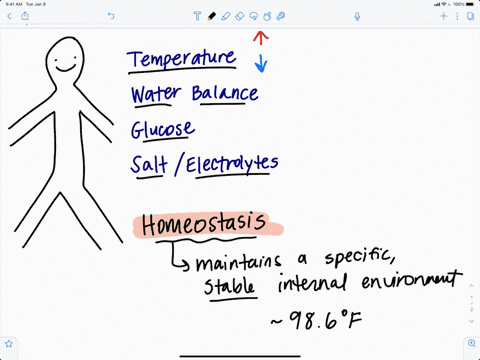 9:41 AM Tue Jan 9
Temperature
Water Balance
Glucose
Salt / Electrolytes
Homeostasis
maintains a specific,
stable internal environment
~ 98.6°F